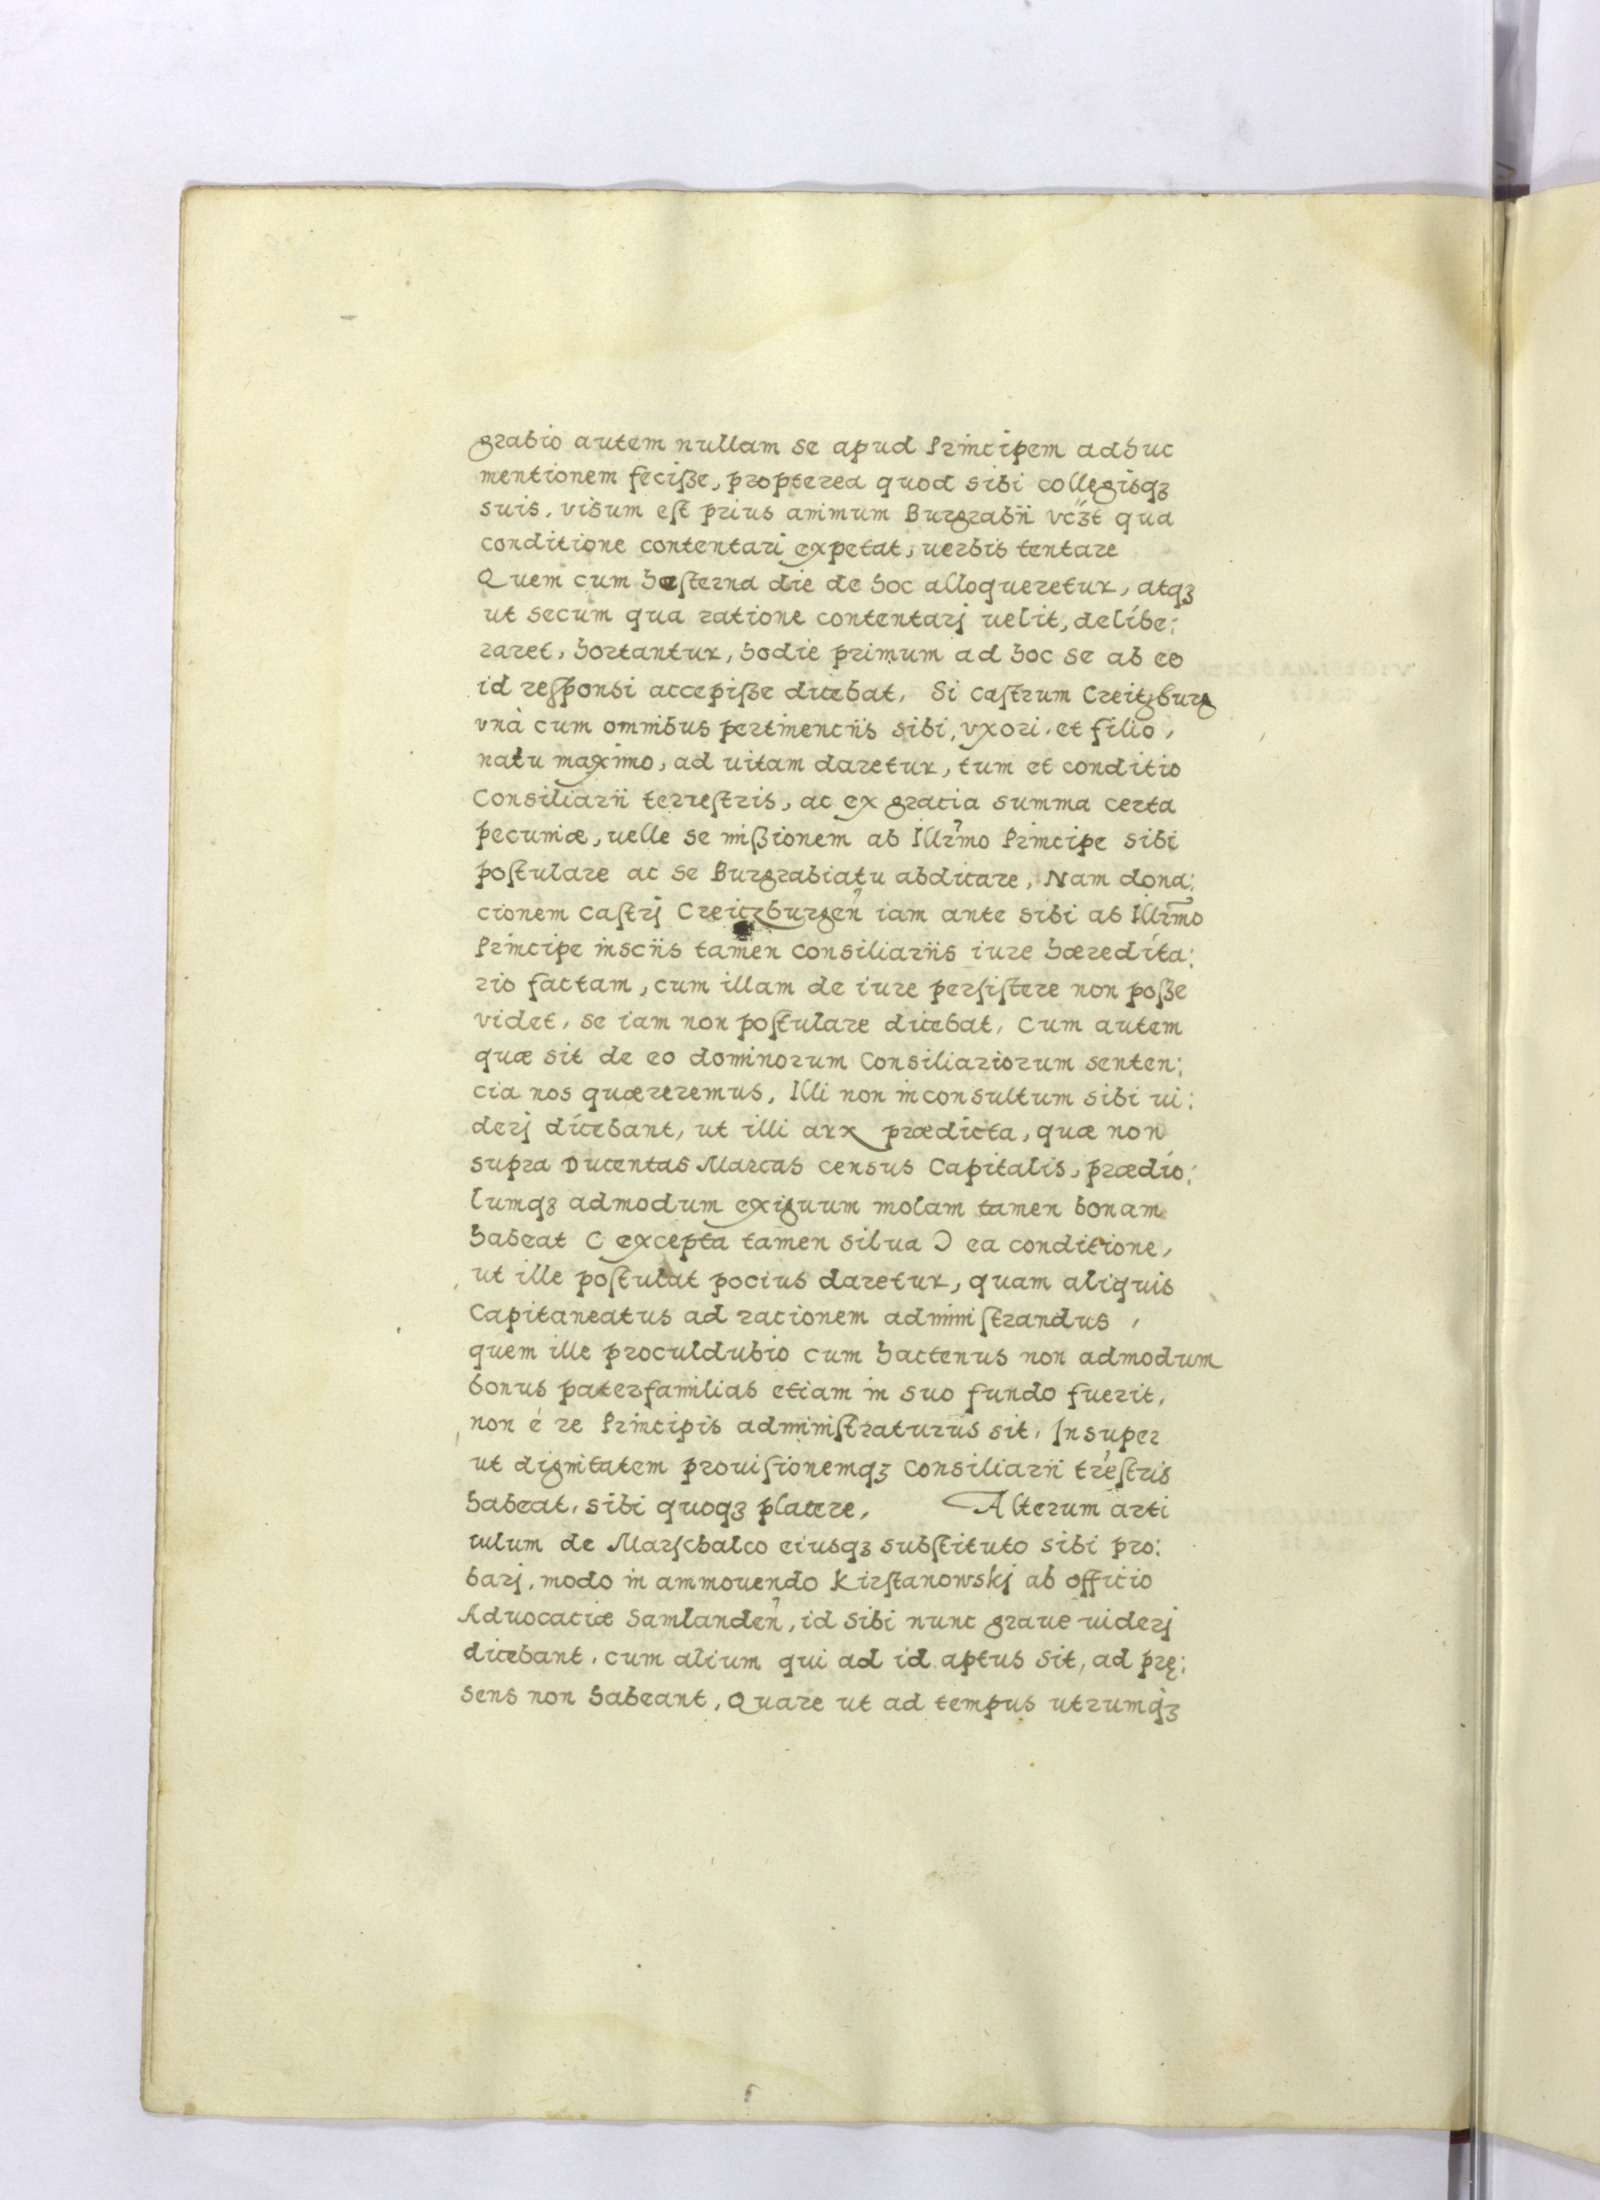 grabio autem nullam se apud Principem adhuc
mentionem feciße, propterea quod sibi collegisqꝫ
suis, visum eſt prius animum Burgrabÿ vcꝫt qua
conditione contentari expetat, uerbis tentare
Quem cum heſterna die de hoc alloqueretur, atqꝫ
ut secum qua ratione contentarj uelit, delibe:
raret, hortantur, hodie primum ad hoc se ab eo
id reſponsi accepiße dicebat, Si caſtrum Creitzburg
vnà cum omnibus pertinencÿs sibi, vxori, et filio,
natu maximo, ad uitam daretur, tum et conditio
Consiliarÿ terreſtris, ac ex gracia summa certa
pecuniæ, uelle se mißionem ab Illr̃mo Principe sibi
poſtulare ac se Burgrabiatu abdicare, Nam dona:
cionem Caſtrj Creitzburgen̄ iam ante sibi ab Illr̃mo
Principe inscÿs tamen Consiliarÿs iure hæredita:
rio factam, cum illam de iure perſiſtere non poße
videt, se iam non poſtulare dicebat, Cum autem
quæ sit de eo dominorum Consiliariorum senten:
cia nos quæreremus, Illi non inconsultum sibi ui:
derj dicebant, ut illi arx prædicta, quæ non
supra Ducentas Marcas census Capitalis, prædio:
lumqꝫ admodum exiguum molam tamen bonam
habeat C excepta tamen silua Ↄ ea conditione,
ut ille poſtulat pocius daretur, quam aliquis
Capitaneatus ad racionem adminiſtrandus,
quem ille proculdubio cum hactenus non admodum
bonus paterfamilias etiam in suo fundo fuerit,
non é re Principis adminiſtraturus sit, Insuper
ut dignitatem prouiſionemqꝫ Consiliarÿ tr̃eſtris
habeat, sibi quoqꝫ placere, Alterum arti
culum de Marſchalco eiusqꝫ subſtituto sibi pro:
barj, modo in ammouendo Kirſtanowskj ab officio
Aduocaciæ Samlanden̄, id sibi nunc graue uiderj
dicebant, cum alium qui ad id aptus sit, ad pręː
sens non habeant, Quare ut ad tempus utrumqꝫ